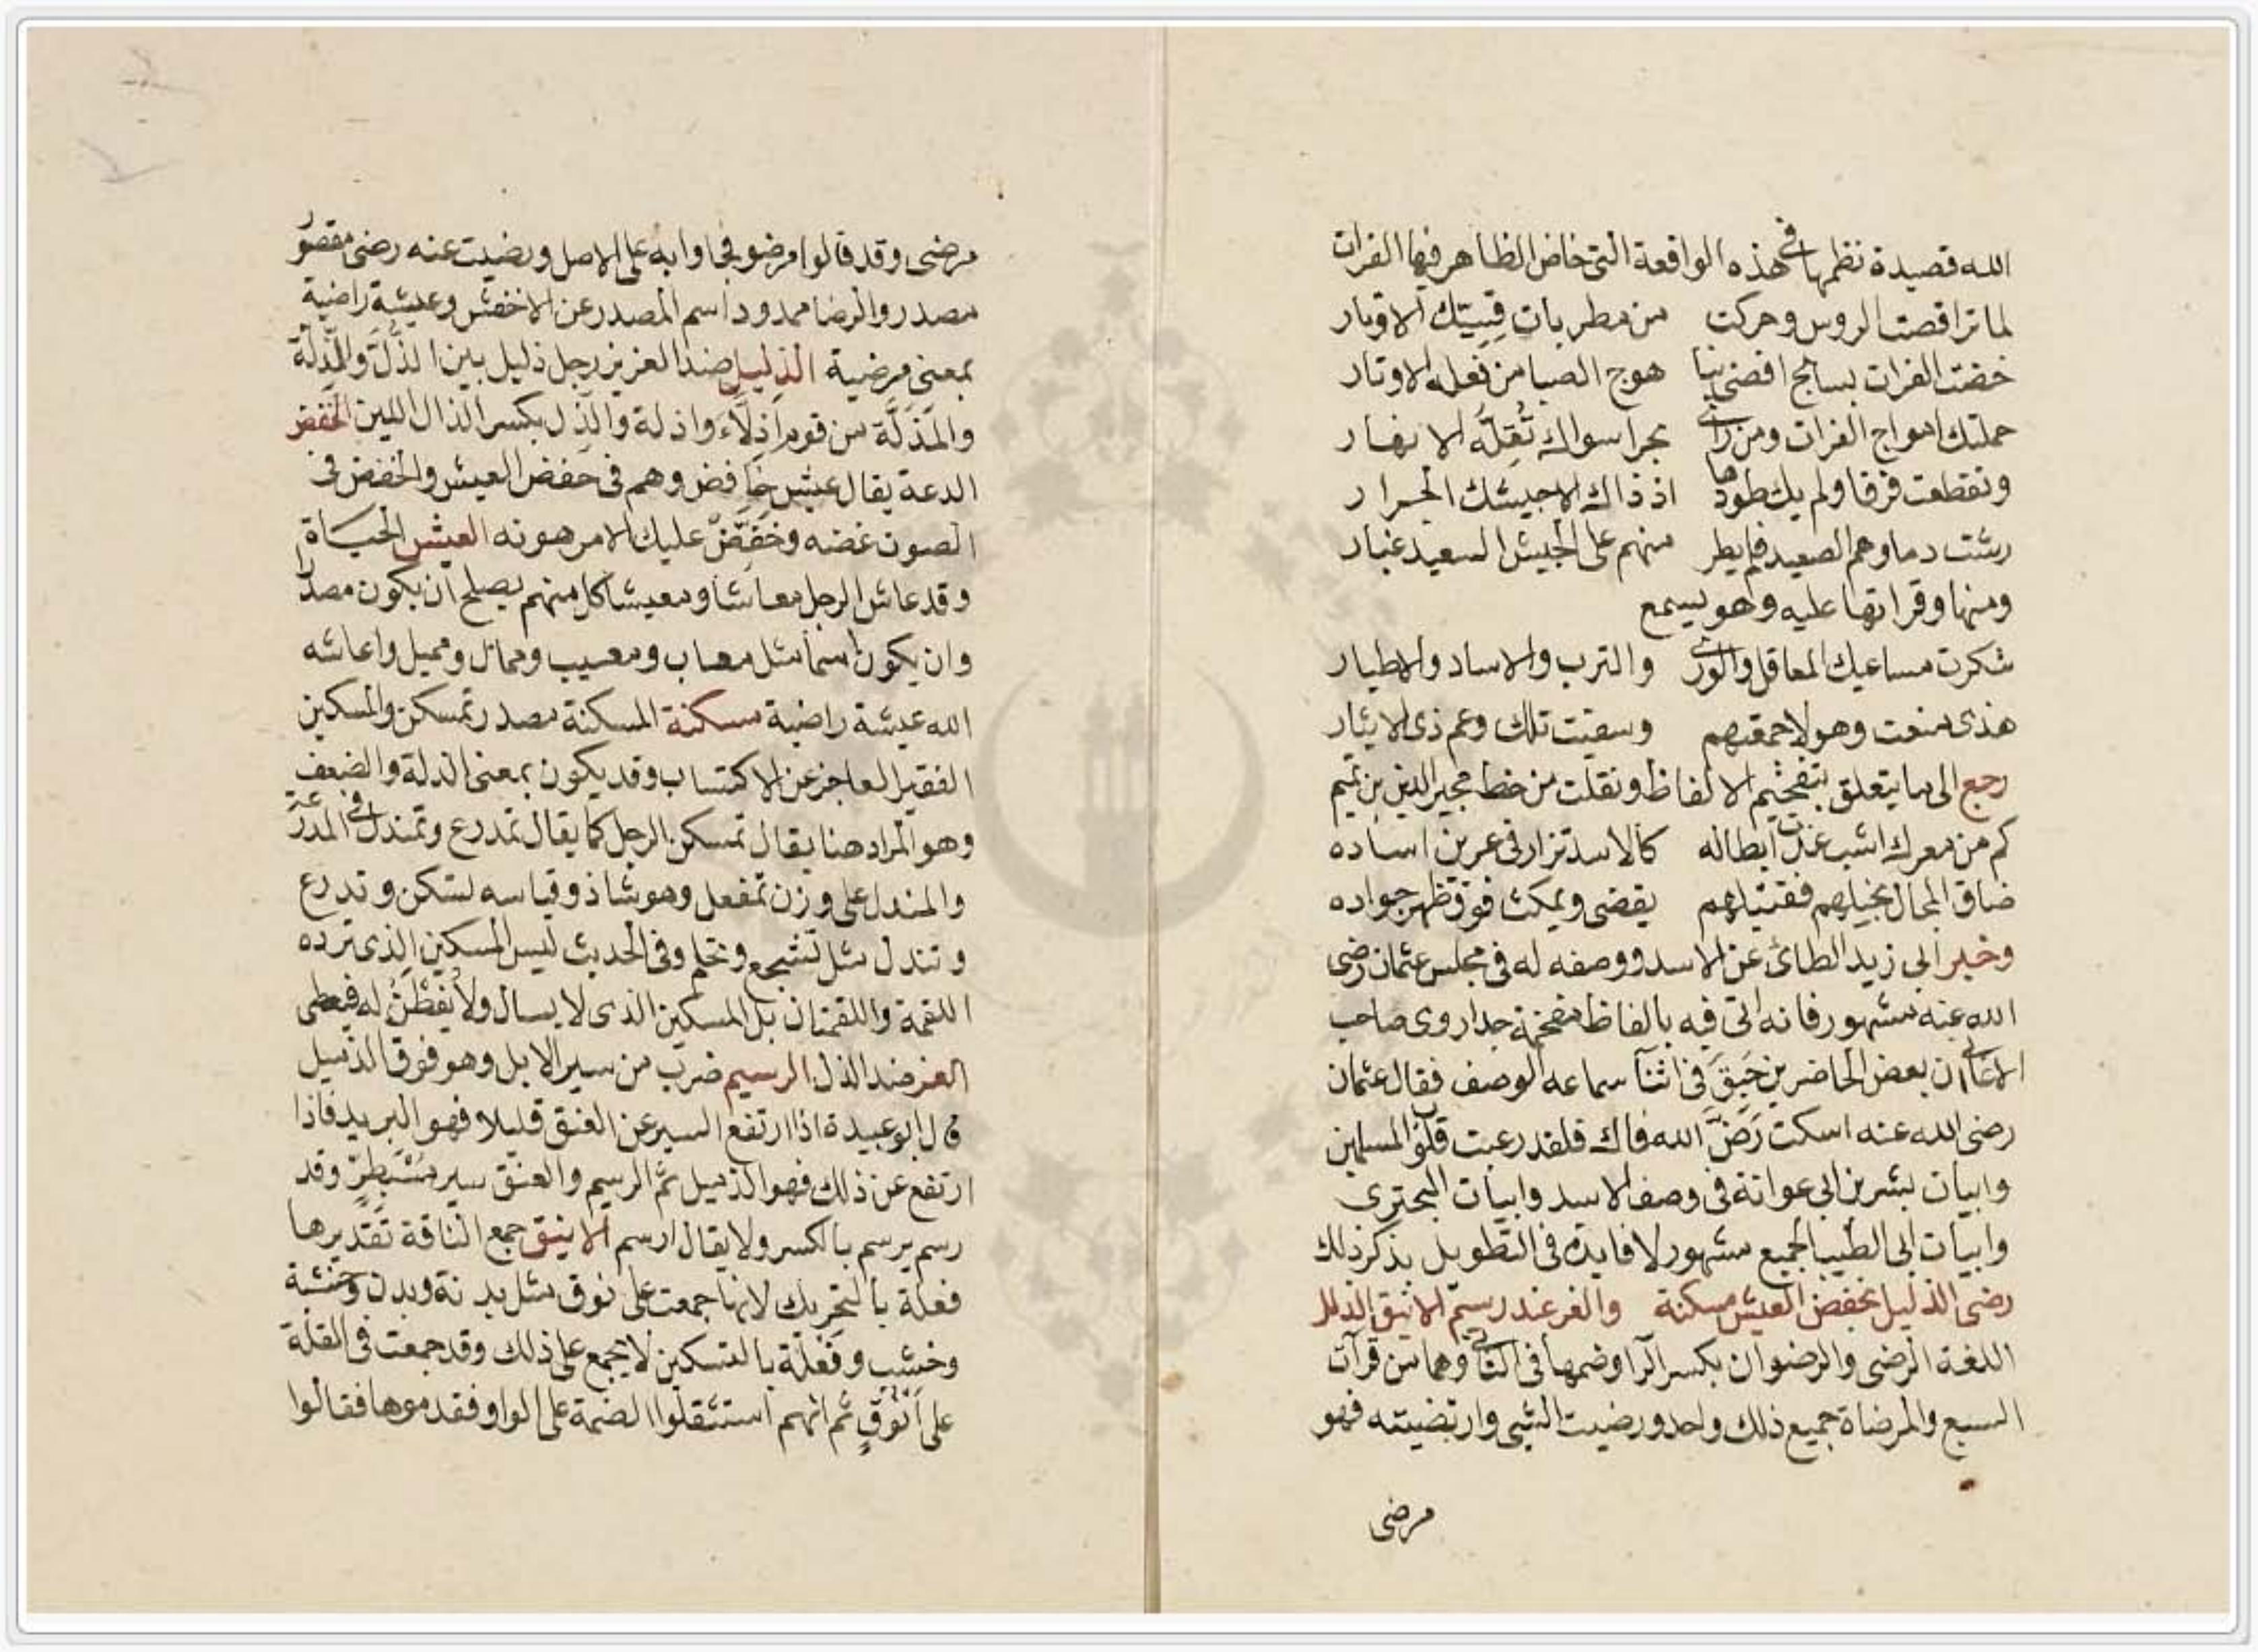 الله قصيدة نظمها في هذه الواقعة التي خاض الظاهر فيها الفرات
لما تراقصت الروس وحركت من مطربات قسيّك الاوتار
خضت الفرات بسابح اقصى منا هوج الصبا من نعله الاوتار
حملتك امواج الفرات ومن راى بحرا سواك تُقِلُّه الانهار
وتقطعت فرقا ولم يك طودها اذ ذاك الا جيشك الجرار
رشت دماوهم الصعيد فلم يطر منهم على الجيش السعيد غبار
ومنها وقراتها عليه وهو يسمع
شكرت مساعيك المعاقل والورى والترب والاساد والاطيار
هذى منعت وهولا حميتهم وسقيت تلك وعم ذى الايثار
رجع الى ما يتعلق بتفخيم الالفاظ ونقلت من خط مجير الدين بن تميم
كم من معرك اشب غدت ابطاله كالاسد تزار فى عرين اساده
ضاق المجال بخيلهم فقتيلهم يقضى ويمكث فوق ظهر جواده
وخبر ابى زبيد الطائى عن الاسد ووصفه له فى مجلس عثمان رضى
الله عنه مشهور فانه اتى فيه بالفاظ مفخمة جدا روى صاحب
الاغانى ان بعض الحاضرين حَبِقَ فى اثنا سماعه الوصف فقال عثمان
رضى الله عنه اسكت رَضَّ الله فاك فلقد رعبت قلوب المسلمين
وابيات بشر بن ابى عوانة فى وصف الاسد وابيات البحترى
وابيات ابى الطيب الجميع مشهور لا فايدة فى التطويل بذكر ذلك
رضى الذليل بخفض العيش مسكنة والعز عند رسيم الاينق الذلل
اللغة الرضى والرضوان بكسر الرا وضمها فى الثانى وهما من قرآت
السبع والمرضاة جميع ذلك واحد ورضيت الشى وارتضيته فهو
مرضى
مرضى وقد قالوا مرضو فجاوا به على الاصل ورضيت عنه رضى مقصور
مصدر والرضا ممدود اسم المصدر عن الاخفش وعيشة راضية
بمعنى مرضية الذليل ضد العزيز رجل ذليل بين الذُّل والذلة
والمَذَلَّة من قوم اَذِلَّاءَ واذلة والذِل بكسر الذال اللين الخفض
الدعة يقال عيش خافض وهم فى خفض العيش والخفض فى
الصوت غضه وخَفِّضْ عليك الامر هونه العيش الحياة
وقد عاش الرجل معاشا ومعيشا كل منهم يصلح ان يكون مصدرا
وان يكون اسما مثل معاب ومعيب وممال ومميل واعاشه
الله عيشة راضية مسكنة المسكنة مصدر تمسكن والمسكين
الفقير العاجز عن الاكتساب وقد يكون بمعنى الذلة والضعف
وهو المراد هنا يقال تمسكن الرجل كما يقال تمدرع وتمندل فى المدرعة
والمندل على وزن تمفعل وهو شاذ وقياسه تسكن وتدرع
وتندل مثل تشجع وتحلم وفى الحديث ليس المسكين الذى ترده
اللقمة واللقمتان بل المسكين الذى لا يسال ولا يُفْطَنُ له فيعطى
العز ضد الذل الرسيم ضرب من سير الابل وهو فوق الذميل
قال ابو عبيدة اذا ارتفع السير عن العنق قليلا فهو البريد فاذا
ارتفع عن ذلك فهو الذميل ثم الرسيم والعنق سير مُسْبَطِرٌّ وقد
رسم يرسم بالكسر ولا يقال ارسم الاينق جمع الناقة تقديرها
فعلة بالتحريك لانها جمعت على نوق مثل بدنة وبدن وخشبة
وخشب وفَعْلة بالتسكين لا يجمع على ذلك وقد جمعت فى القلة
على اَنْوُقٍ ثم انهم استثقلوا الضمة على الواو فقدموها فقالوا